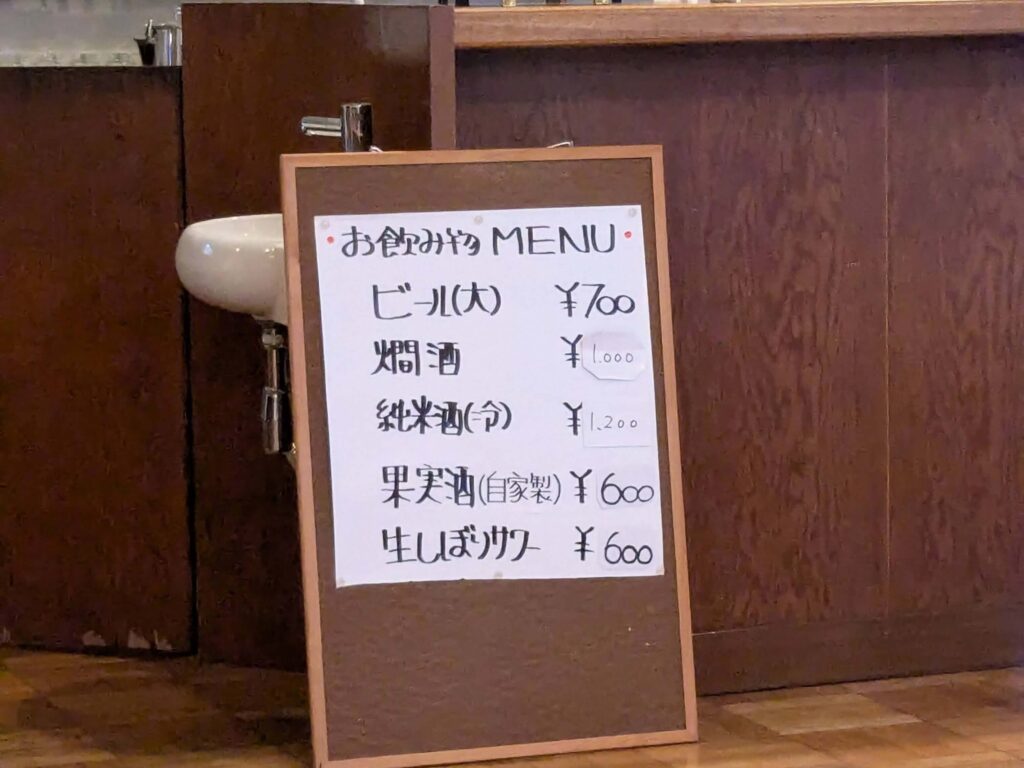 ・お飲み物 MENU・
ビール(大) ¥700
燗酒 ¥1,000
純米酒(冷) ¥1,200
果実酒(自家製) ¥600
生しぼりサワー ¥600